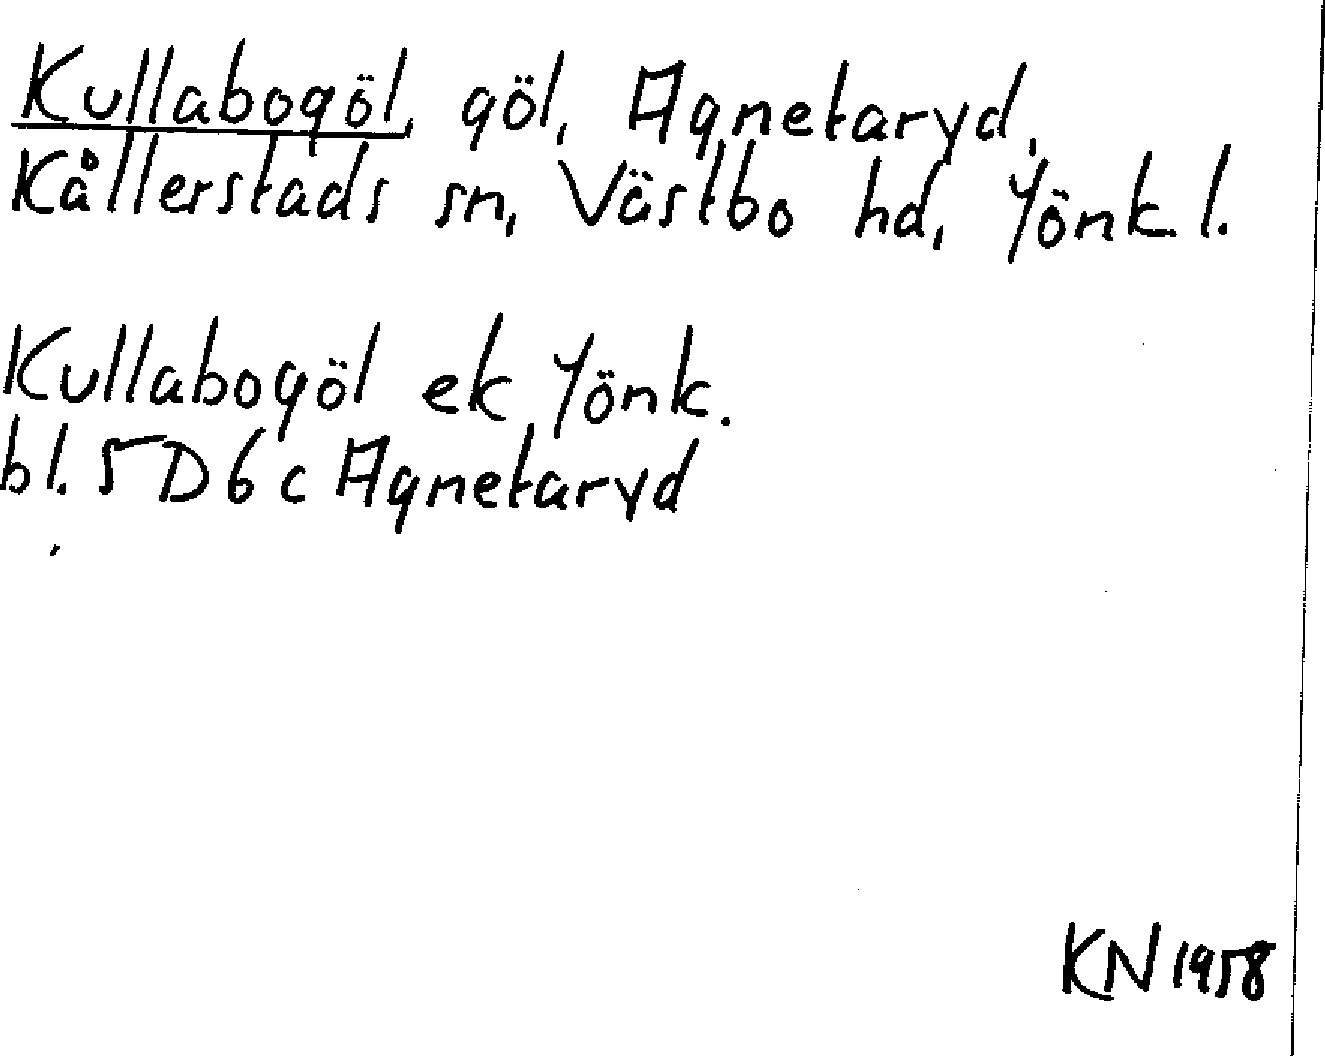 Kullabogöl, göl, Agnetaryd,
Kållerstads sn, Västbo hd, Jönk. l.
Kullabogöl ek Jönk.
bl. 5D6c Agnetaryd
KN 1958